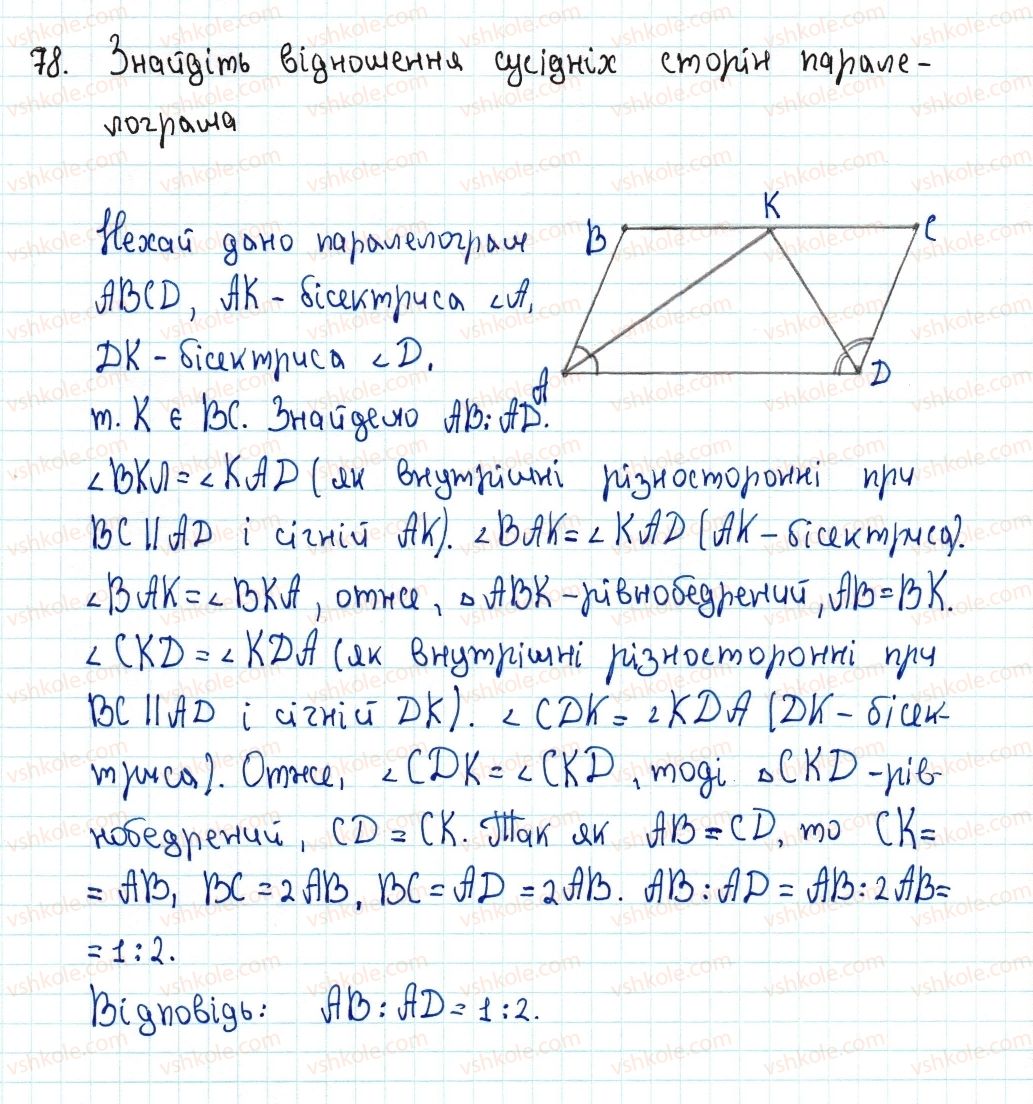 78. Знайдіть відношення сусідніх сторін парале-
лограма
Нехай дано паралелограм
ABCD, AK - бісектриса ∠A,
DK - бісектриса ∠D.
т. K є BC. Знайдемо AB:AD.
B
K
C
A
D
∠BKЛ = ∠KAD (як внутрішні різносторонні при
BC || AD і січній AK). ∠BAK = ∠KAD (AK - бісектриса).
∠BAK = ∠BKA, отже, △ABK - рівнобедрений, AB = BK.
∠CKD = ∠KDA (як внутрішні різносторонні при
BC || AD і січній DK). ∠CDK = ∠KDA (DK - бісек-
триса). Отже, ∠CDK = ∠CKD, тоді △CKD - рів-
нобедрений, CD = CK. Так як AB = CD, то CK =
= AB, BC = 2AB, BC = AD = 2AB. AB : AD = AB : 2AB =
= 1 : 2.
Відповідь: AB : AD = 1 : 2.
vshkole.com